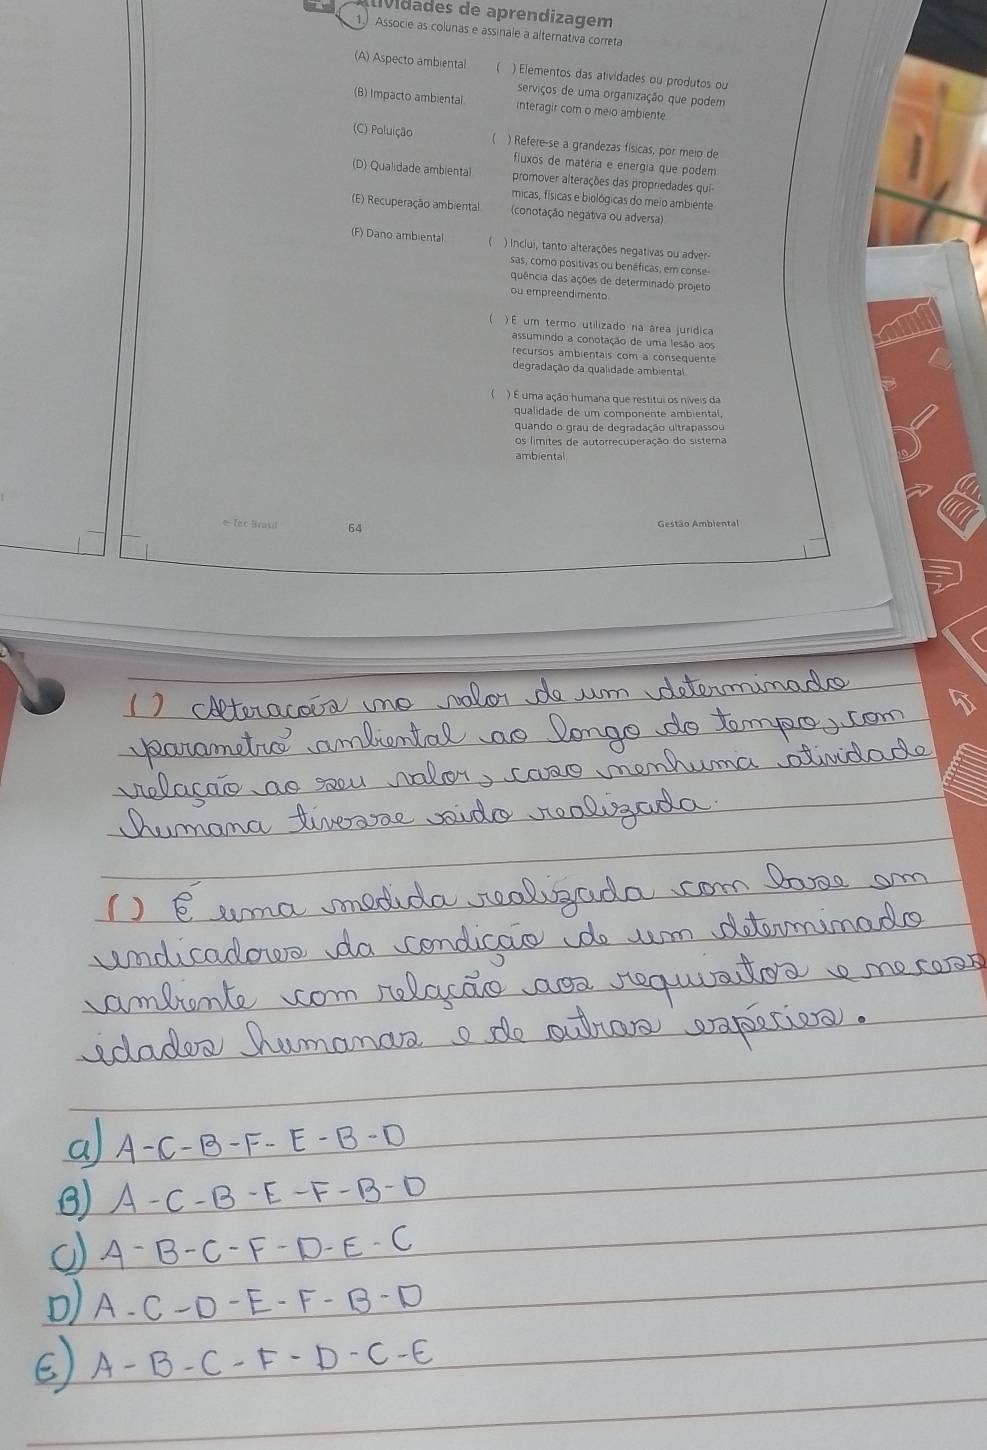 tividades de aprendizagem
1. Associe as colunas e assinale a alternativa correta
(A) Aspecto ambiental
(B) Impacto ambiental
(C) Poluição
(D) Qualidade ambiental
(E) Recuperação ambiental
(F) Dano ambiental
( ) Elementos das atividades ou produtos ou
serviços de uma organização que podem
interagir com o meio ambiente.
( ) Refere-se a grandezas físicas, por meio de
fluxos de matéria e energia que podem
promover alterações das propriedades quí-
micas, físicas e biológicas do meio ambiente
(conotação negativa ou adversa)
( ) Inclui, tanto alterações negativas ou adver-
sas, como positivas ou benéficas, em conse-
quência das ações de determinado projeto
ou empreendimento.
( ) É um termo utilizado na área jurídica
assumindo a conotação de uma lesão aos
recursos ambientais com a consequente
degradação da qualidade ambiental.
( ) É uma ação humana que restitui os níveis da
qualidade de um componente ambiental,
quando o grau de degradação ultrapassou
os limites de autorrecuperação do sistema
ambiental
e-Tec Brasil
64
Gestão Ambiental
( ) Alteracois no valor de um determinado
parametro ambiental ao longo do tempo, com
relação ao seu valor, caso nenhuma atividade
humana tivesse sido realizada.
( ) É uma medida realizada com base em
indicadores da condição de um determinado
ambiente com relação aos requisitos e necess
idades humanas e de outras espésies.
a) A-C-B-F-E-B-D
B) A-C-B-E-F-B-D
C) A-B-C-F-D-E-C
D) A-C-D-E-F-B-D
E) A-B-C-F-D-C-E